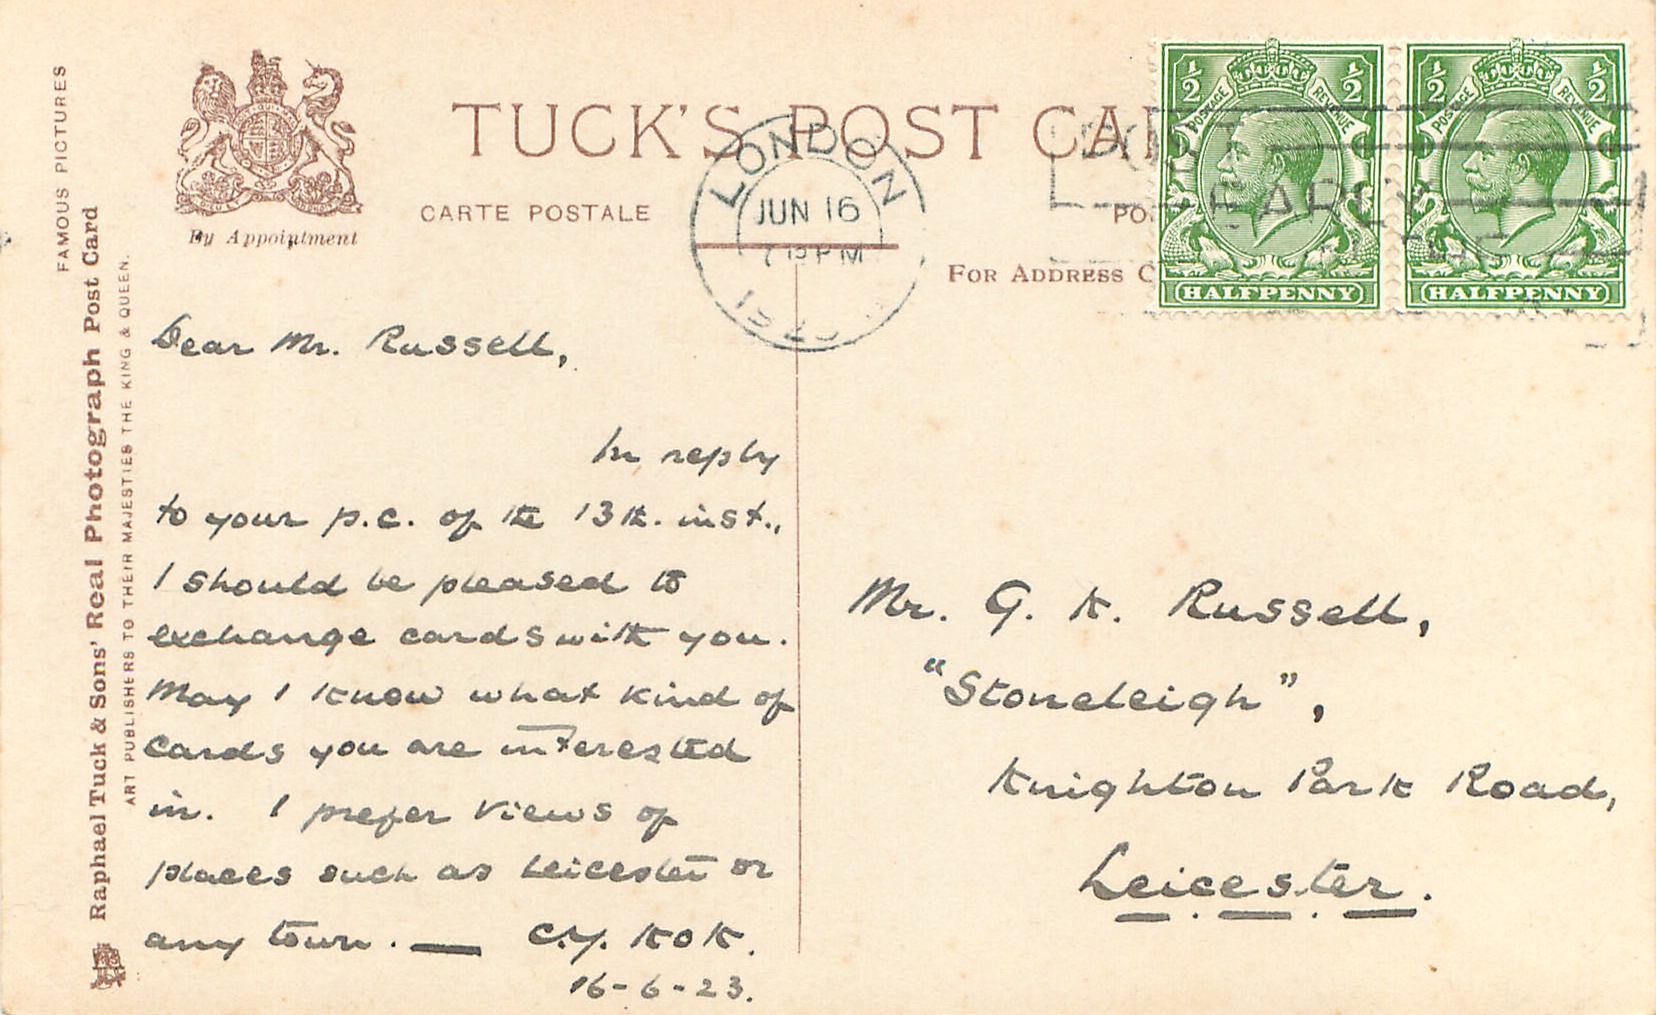 FAMOUS PICTURES
Raphael Tuck & Sons' Real Photograph Post Card
ART PUBLISHERS TO THEIR MAJESTIES THE KING & QUEEN.
By Appointment
TUCK'S POST CA
CARTE POSTALE
PO
FOR ADDRESS
LONDON
JUN 16
PM
EARLY
1/2 1/2
POSTAGE REVENUE
HALFPENNY
1/2 1/2
POSTAGE REVENUE
HALFPENNY
Dear Mr. Russell,
In reply
to your p.c. of the 13th. inst.,
I should be pleased to
exchange cards with you.
May I know what kind of
cards you are interested
in. I prefer views of
places such as Leicester or
any town. — C.Y. KOK.
16-6-23.
Mr. G. K. Russell,
"Stoneleigh",
Knighton Park Road,
Leicester.